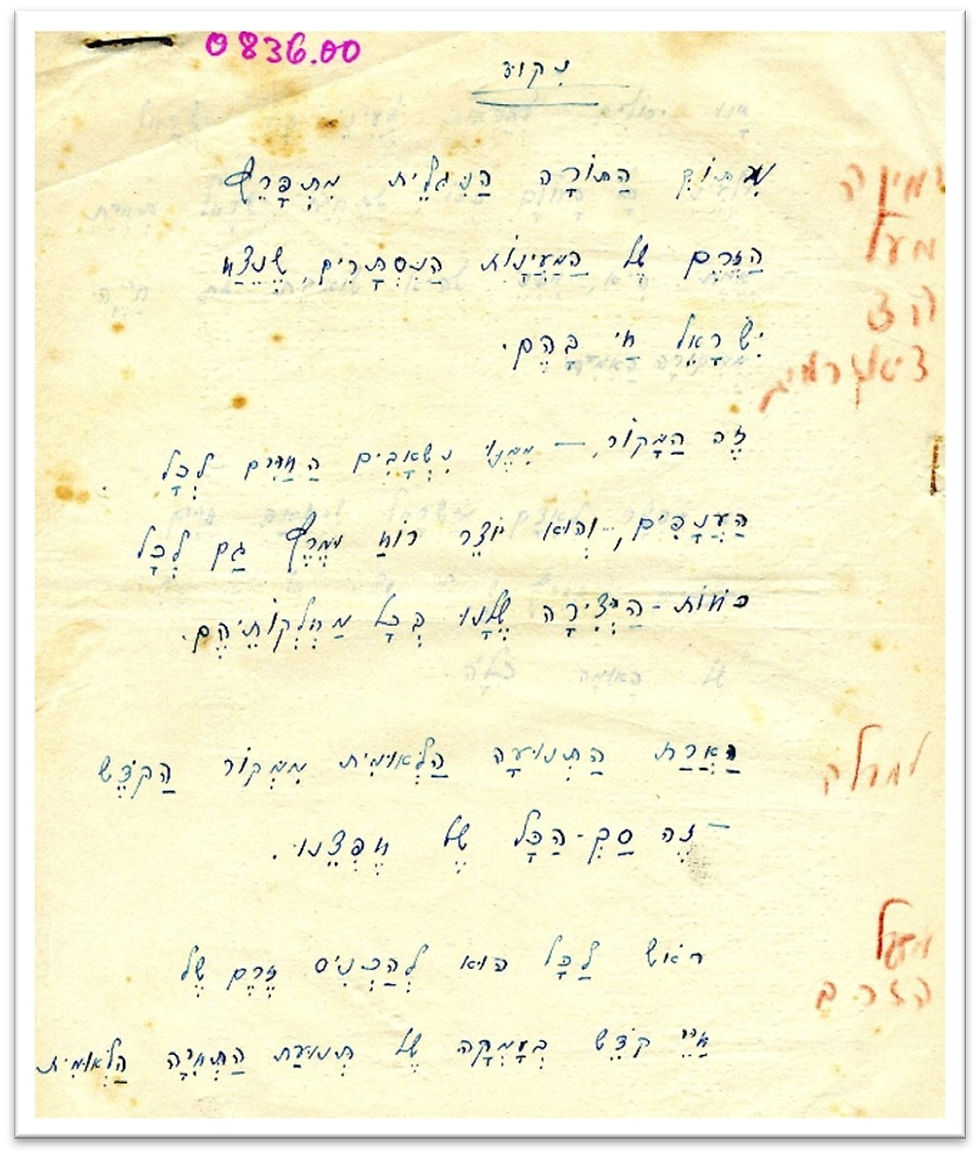 0836.00
ניקוד
מִתּוֹךְ הַתּוֹרָה הַנִּגְלֵית מִתְפָּרֵץ
הַזֶּרֶם שֶׁל הַמַּעֲיָנוֹת הַנִּסְתָּרִים שֶׁנֶּצַח
יִשְׂרָאֵל חַי בָּהֶם.
זֶה הַמָּקוֹר, – מִמֶּנּוּ נִשְׁאָבִים הַחַיִּים לְכָל
הָעֲנָפִים, וְהוּא יוֹצֵר רוּחַ מְמָרֵץ גַּם לְכָל
כֹּחוֹת-הַיְצִירָה שֶׁלָּנוּ בְּכָל מַחְלְקוֹתֵיהֶם.
הֶאָרַת הַתְּנוּעָה הַלְּאוּמִית מִמְּקוֹר הַקֹּדֶשׁ
– זֶה סַךְ-הַכֹּל שֶׁל חֶפְצֵנוּ.
רֹאשׁ לַכֹּל הוּא לְהַכְנִיס זֶרֶם שֶׁל
חַיֵּי קֹדֶשׁ בְּעָמְקָהּ שֶׁל תְּנוּעַת הַתְּחִיָּה הַלְּאוּמִית
מעל
מעל
הזרם